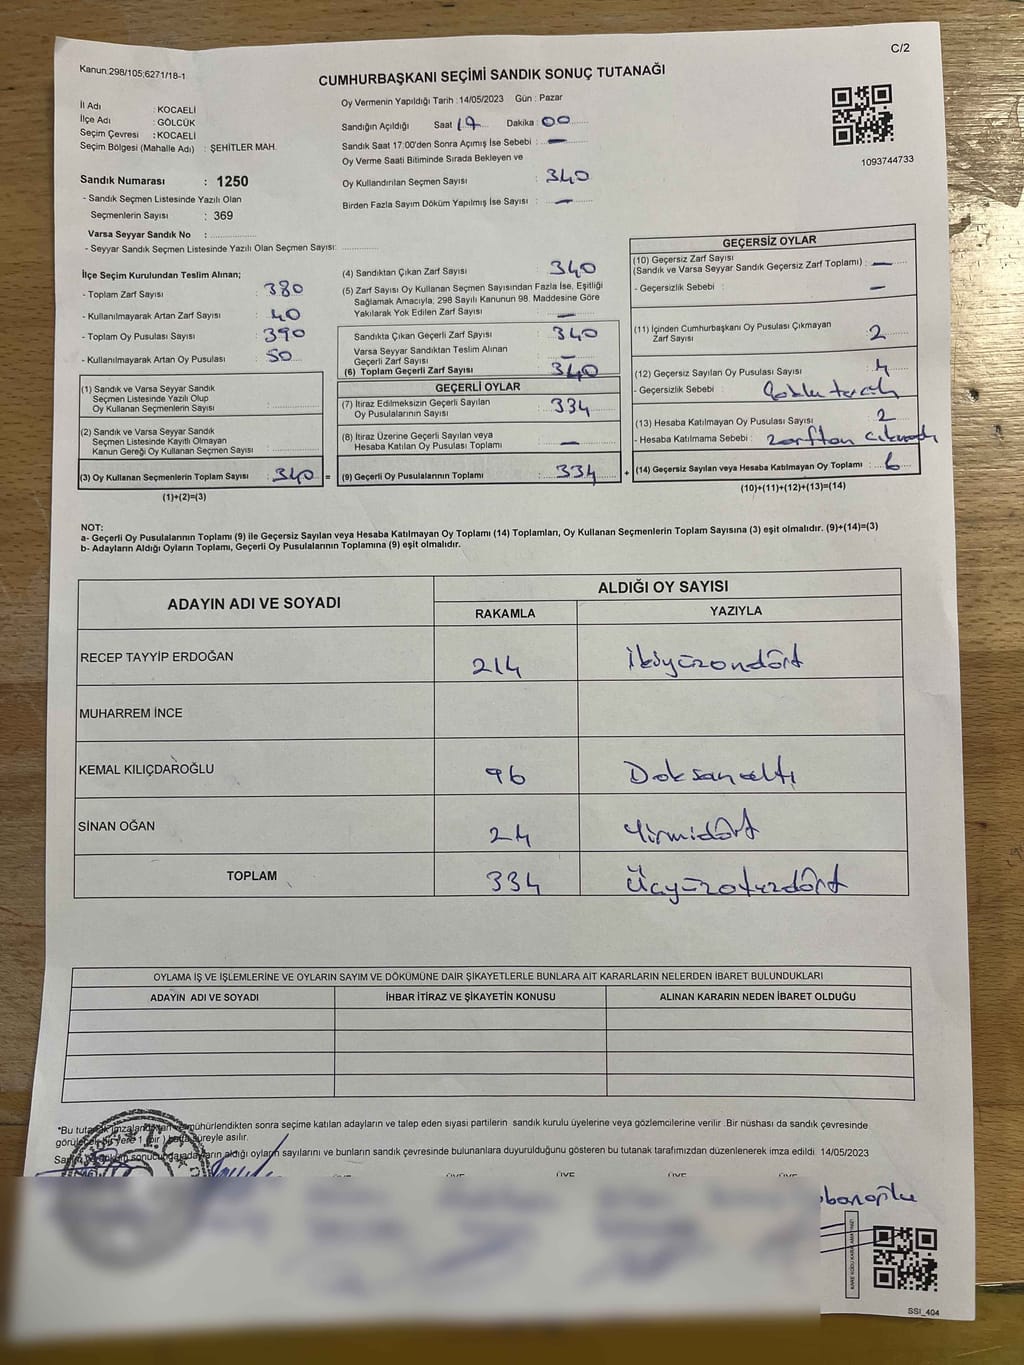 C/2
Kanun:298/105;6271/18-1
CUMHURBAŞKANI SEÇİMİ SANDIK SONUÇ TUTANAĞI
Oy Vermenin Yapıldığı Tarih : 14/05/2023 Gün : Pazar
İl Adı : KOCAELİ
İlçe Adı : GÖLCÜK
Seçim Çevresi : KOCAELİ
Seçim Bölgesi (Mahalle Adı) : ŞEHİTLER MAH.
Sandığın Açıldığı Saat 17 Dakika 00
Sandık Saat 17:00'den Sonra Açımış İse Sebebi : —
Oy Verme Saati Bitiminde Sırada Bekleyen ve
Oy Kullandırılan Seçmen Sayısı : 340
Birden Fazla Sayım Döküm Yapılmış İse Sayısı : —
1093744733
Sandık Numarası : 1250
- Sandık Seçmen Listesinde Yazılı Olan
Seçmenlerin Sayısı : 369
Varsa Seyyar Sandık No :
- Seyyar Sandık Seçmen Listesinde Yazılı Olan Seçmen Sayısı:
İlçe Seçim Kurulundan Teslim Alınan;
- Toplam Zarf Sayısı : 380
- Kullanılmayarak Artan Zarf Sayısı : 40
- Toplam Oy Pusulası Sayısı : 390
- Kullanılmayarak Artan Oy Pusulası : 50
(1) Sandık ve Varsa Seyyar Sandık
Seçmen Listesinde Yazılı Olup
Oy Kullanan Seçmenlerin Sayısı :
(2) Sandık ve Varsa Seyyar Sandık
Seçmen Listesinde Kayıtlı Olmayan
Kanun Gereği Oy Kullanan Seçmen Sayısı :
(3) Oy Kullanan Seçmenlerin Toplam Sayısı : 340 =
(1)+(2)=(3)
(4) Sandıktan Çıkan Zarf Sayısı : 340
(5) Zarf Sayısı Oy Kullanan Seçmen Sayısından Fazla İse, Eşitliği
Sağlamak Amacıyla, 298 Sayılı Kanunun 98. Maddesine Göre
Yakılarak Yok Edilen Zarf Sayısı : —
Sandıkta Çıkan Geçerli Zarf Sayısı : 340
Varsa Seyyar Sandıktan Teslim Alınan
Geçerli Zarf Sayısı : —
(6) Toplam Geçerli Zarf Sayısı : 340
GEÇERLİ OYLAR
(7) İtiraz Edilmeksizin Geçerli Sayılan
Oy Pusulalarının Sayısı : 334
(8) İtiraz Üzerine Geçerli Sayılan veya
Hesaba Katılan Oy Pusulası Toplamı : —
(9) Geçerli Oy Pusulalarının Toplamı : 334 +
GEÇERSİZ OYLAR
(10) Geçersiz Zarf Sayısı
(Sandık ve Varsa Seyyar Sandık Geçersiz Zarf Toplamı) : —
- Geçersizlik Sebebi : —
(11) İçinden Cumhurbaşkanı Oy Pusulası Çıkmayan
Zarf Sayısı : 2
(12) Geçersiz Sayılan Oy Pusulası Sayısı : 4
- Geçersizlik Sebebi : Çoklu tercih
(13) Hesaba Katılmayan Oy Pusulası Sayısı : 2
- Hesaba Katılmama Sebebi : zarftan çıkmadı
(14) Geçersiz Sayılan veya Hesaba Katılmayan Oy Toplamı : 6
(10)+(11)+(12)+(13)=(14)
NOT:
a- Geçerli Oy Pusulalarının Toplamı (9) ile Geçersiz Sayılan veya Hesaba Katılmayan Oy Toplamı (14) Toplamları, Oy Kullanan Seçmenlerin Toplam Sayısına (3) eşit olmalıdır. (9)+(14)=(3)
b- Adayların Aldığı Oyların Toplamı, Geçerli Oy Pusulalarının Toplamına (9) eşit olmalıdır.
ADAYIN ADI VE SOYADI
ALDIĞI OY SAYISI
RAKAMLA YAZIYLA
RECEP TAYYİP ERDOĞAN 214 İkiyüzondört
MUHARREM İNCE
KEMAL KILIÇDAROĞLU 96 Doksanaltı
SİNAN OĞAN 24 Yirmidört
TOPLAM 334 Üçyüzotuzdört
OYLAMA İŞ VE İŞLEMLERİNE VE OYLARIN SAYIM VE DÖKÜMÜNE DAİR ŞİKAYETLERLE BUNLARA AİT KARARLARIN NELERDEN İBARET BULUNDUKLARI
ADAYIN ADI VE SOYADI İHBAR İTİRAZ VE ŞİKAYETİN KONUSU ALINAN KARARIN NEDEN İBARET OLDUĞU
*Bu tutanak imzalandıktan ve mühürlendikten sonra seçime katılan adayların ve talep eden siyasi partilerin sandık kurulu üyelerine veya gözlemcilerine verilir. Bir nüshası da sandık çevresinde
görülecek bir yere 1 (bir) hafta süreyle asılır.
adayların aldığı oyların sayılarını ve bunların sandık çevresinde bulunanlara duyurulduğunu gösteren bu tutanak tarafımızdan düzenlenerek imza edildi. 14/05/2023
ÜYE ÜYE ÜYE ÜYE ÜYE
SSI_404